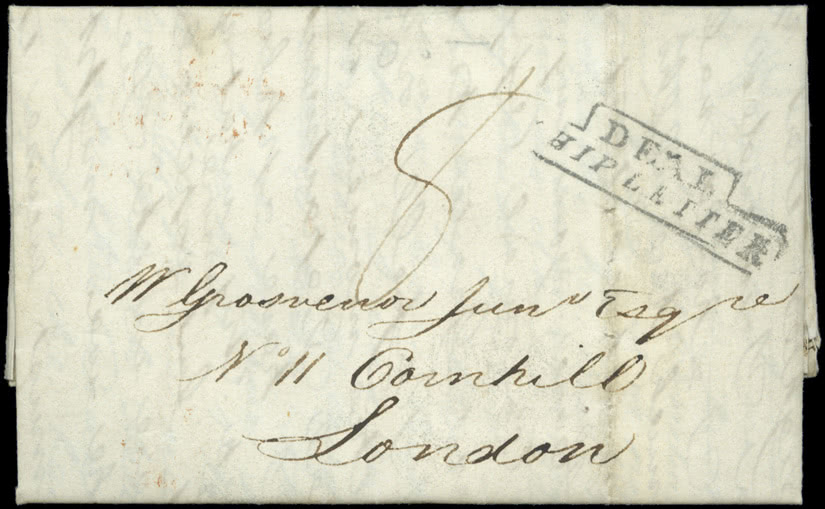 8
DEAL
SHIP LETTER
W Grosvenor Junr Esqre
No 11 Cornhill
London